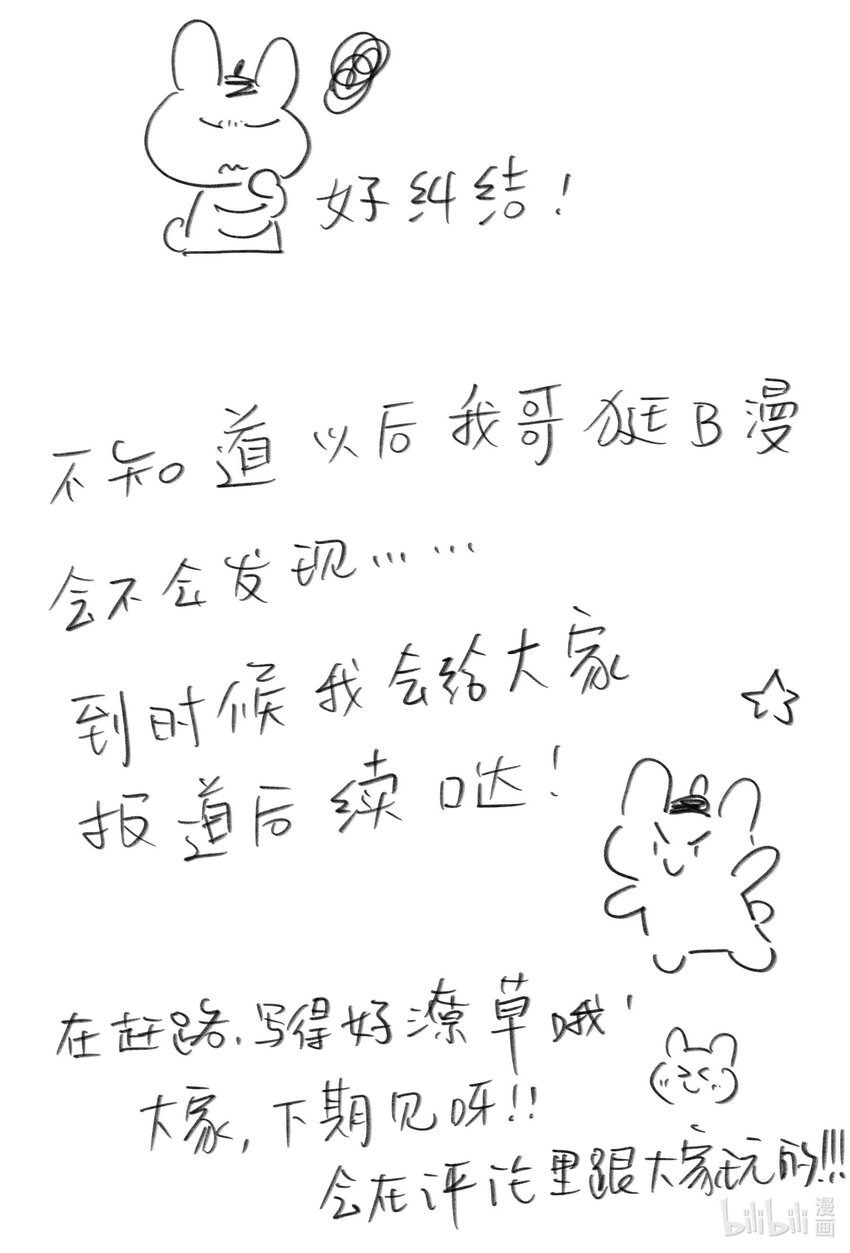 好纠结!
不知道以后我哥逛B漫
会不会发现……
到时候我会给大家
报道后续哒!
在赶路,写得好潦草哦!
大家,下期见呀!!
会在评论里跟大家玩的!!!
bilibili 漫画